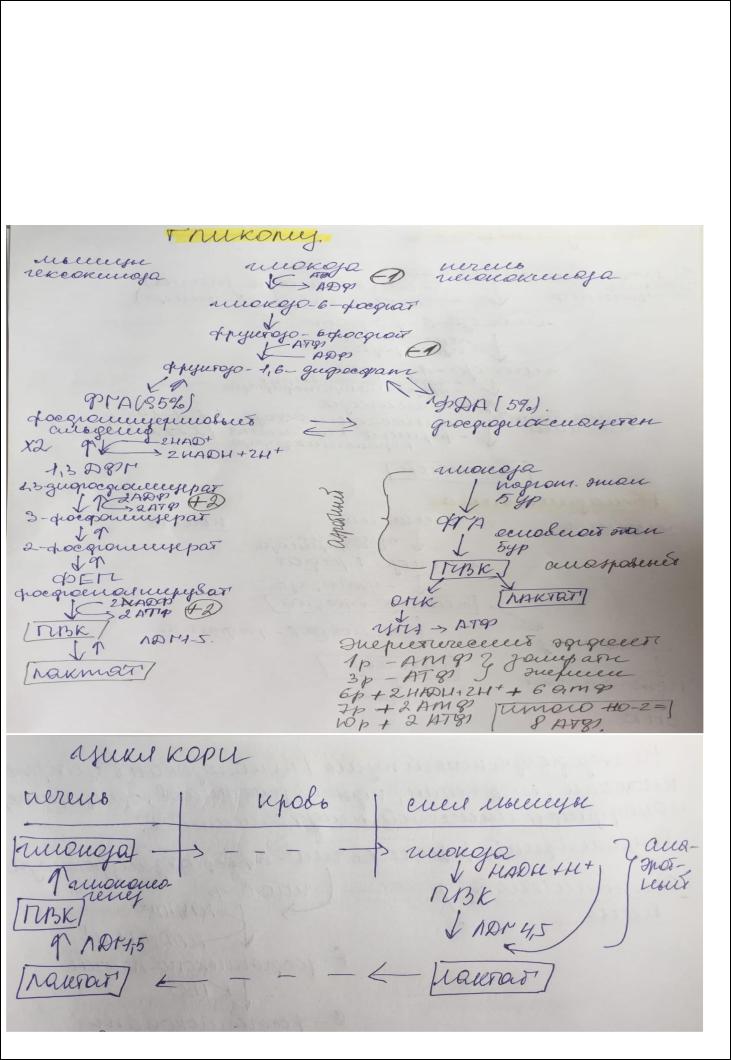 Гликолиз.
мышцы
гексокиназа
глюкоза
АТФ
АДФ
-1
печень
глюкокиназа
глюкозо-6-фосфат
фруктозо-6-фосфат
АТФ
АДФ
-1
фруктозо-1,6-дифосфат
ФГА (95%)
фосфоглицериновый
альдегид
ФДА (5%).
фосфодиоксиацетон
х2
2НАД+
2НАДН+2Н+
1,3 ДФГ
1,3-дифосфоглицерат
2АДФ
2АТФ
+2
3-фосфоглицерат
2-фосфоглицерат
ФЕП
фосфоенолпируват
2АТФ
+2
ПВК
ЛДГ4-5.
лактат
аэробный
глюкоза
подгот. этап
5 ур
ФГА
основной этап
5ур
ПВК
анаэробный
ОПК
лактат
ЦПЭ → АТФ
Энергетический эффект
1р - АТФ } затраты
3р - АТФ } энергии
6р + 2НАДН+2Н+ + 6 АТФ
7р + 2 АТФ
10р + 2 АТФ
Итого 10-2=
8 АТФ.
Цикл КОРИ
печень
кровь
скел мышцы
глюкоза
глюкоза
НАДН+Н+
анаэробный
глюконеогенез
ПВК
ПВК
ЛДГ1,5
ЛДГ 4,5
лактат
лактат